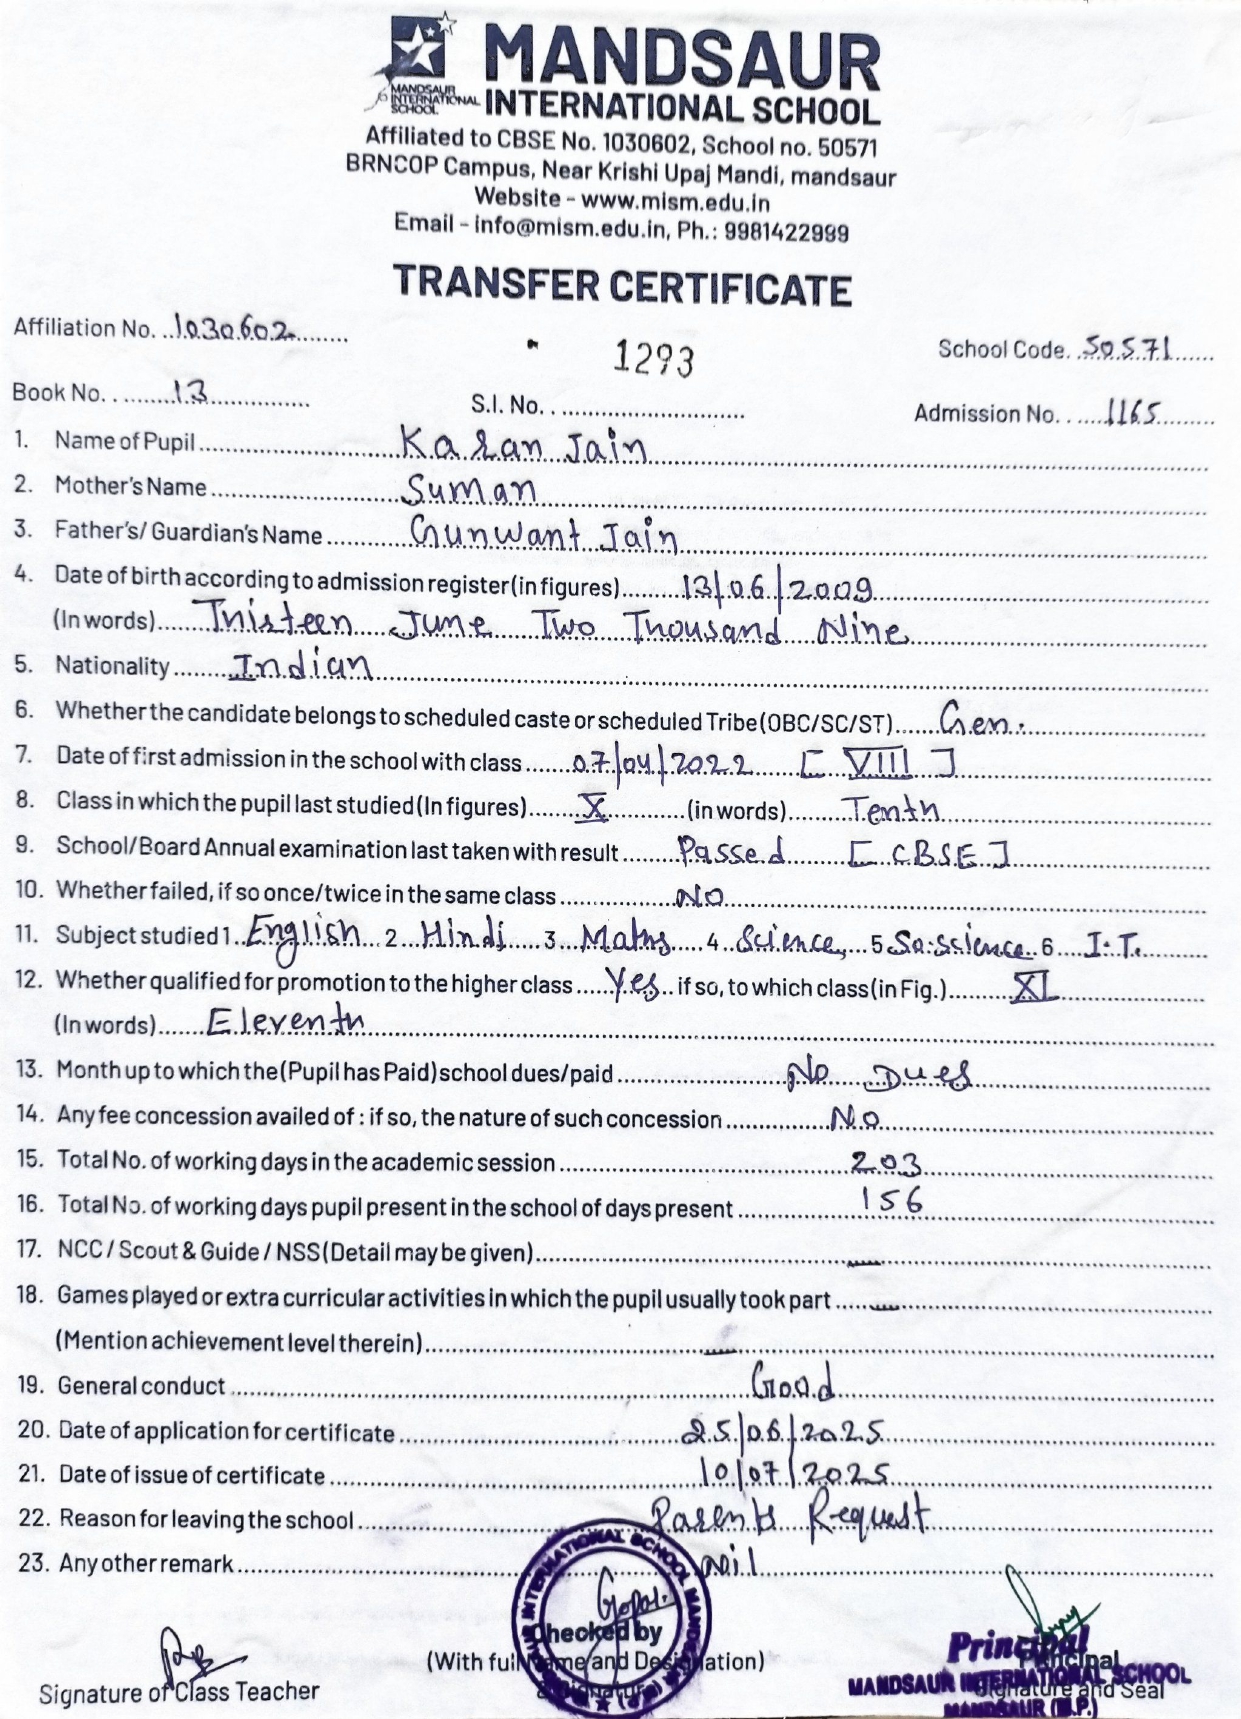 MANDSAUR
INTERNATIONAL SCHOOL
MANDSAUR
INTERNATIONAL
SCHOOL
Affiliated to CBSE No. 1030602, School no. 50571
BRNCOP Campus, Near Krishi Upaj Mandi, mandsaur
Website - www.mism.edu.in
Email - info@mism.edu.in, Ph.: 9981422999
TRANSFER CERTIFICATE
Affiliation No. 1030602 1293 School Code. 50571
Book No. 13 S.I. No. Admission No. 1165
1. Name of Pupil Karan Jain
2. Mother's Name Suman
3. Father's/ Guardian's Name Gunwant Jain
4. Date of birth according to admission register (in figures) 13/06/2009
(In words) Thirteen June Two Thousand Nine
5. Nationality Indian
6. Whether the candidate belongs to scheduled caste or scheduled Tribe (OBC/SC/ST) Gen.
7. Date of first admission in the school with class 07/04/2022 [VIII]
8. Class in which the pupil last studied (In figures) X (in words) Tenth
9. School/Board Annual examination last taken with result Passed [CBSE]
10. Whether failed, if so once/twice in the same class NO
11. Subject studied 1 English 2 Hindi 3 Maths 4 Science, 5 So.science 6 I.T.
12. Whether qualified for promotion to the higher class Yes if so, to which class (in Fig.) XI
(In words) Eleventh
13. Month up to which the (Pupil has Paid) school dues/paid No Dues
14. Any fee concession availed of : if so, the nature of such concession No
15. Total No. of working days in the academic session 203
16. Total No. of working days pupil present in the school of days present 156
17. NCC / Scout & Guide / NSS (Detail may be given) —
18. Games played or extra curricular activities in which the pupil usually took part —
(Mention achievement level therein) —
19. General conduct Good
20. Date of application for certificate 25/06/2025
21. Date of issue of certificate 10/07/2025
22. Reason for leaving the school Parents Request
23. Any other remark Nil
Gopal.
Checked by
(With full Name and Designation)
Signature of Class Teacher
Principal
Principal
MANDSAUR INTERNATIONAL SCHOOL
Signature and Seal
MANDSAUR (M.P.)